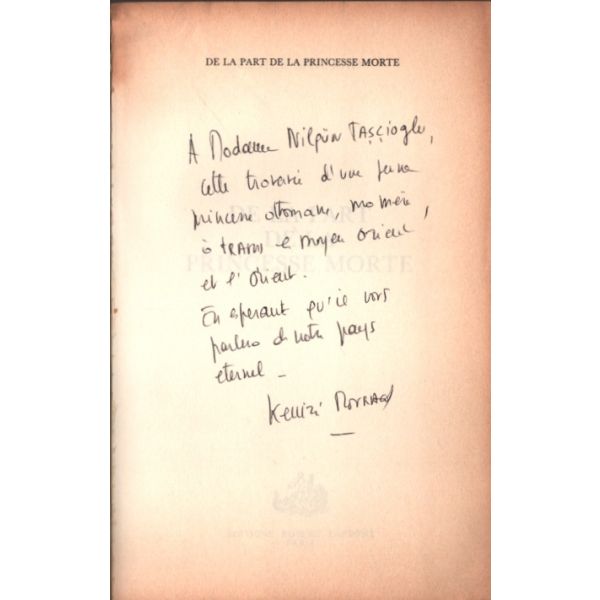 DE LA PART DE LA PRINCESSE MORTE
À Madame Nilgün TAŞÇIOGLU,
cette traversée d'une jeune
princesse ottomane, ma mère,
à travers le moyen orient
et l'orient.
En espérant qu'il vous
parlera de notre pays
éternel -
Kenizé MOURAD
DE LA PART
DE LA
PRINCESSE MORTE
PARIS